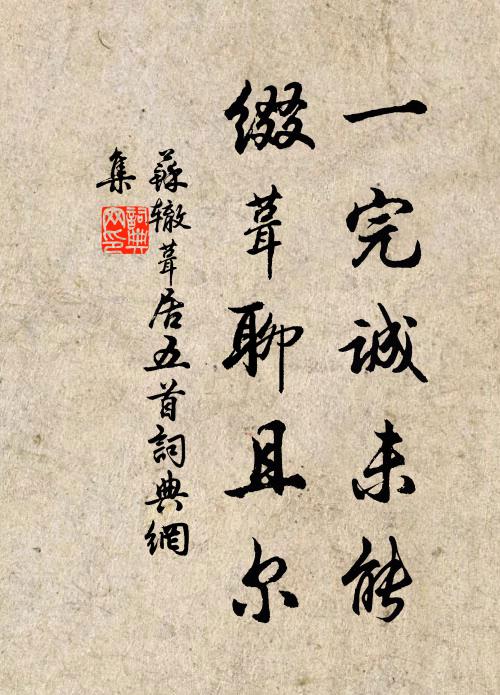 一完誠未能
綴葺聊且尔
蘇辙葺居五首詞典網
集
詞典
网印